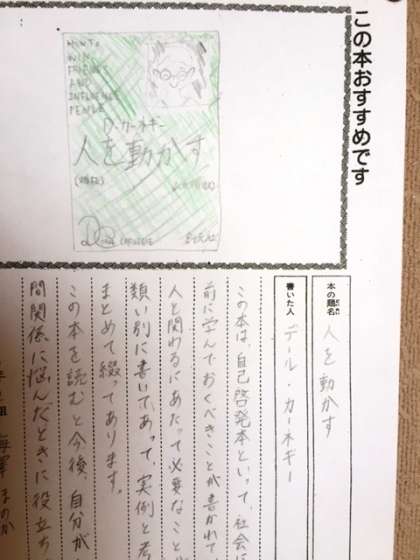 この本おすすめです
HOW TO
WIN
FRIENDS
AND
INFLUENCE
PEOPLE
D・カーネギー
人を動かす
CARNEGIE
本の題名
人を動かす
書いた人
デール・カーネギー
この本は、自己啓発本といって、社会に
前に学んでおくべきことが書かれて
人と関わるにあたって必要なことが
類い別に書いてあって、実例と考
まとめて綴ってあります。
この本を読むと今後、自分が
間関係に悩んだときに役立ち